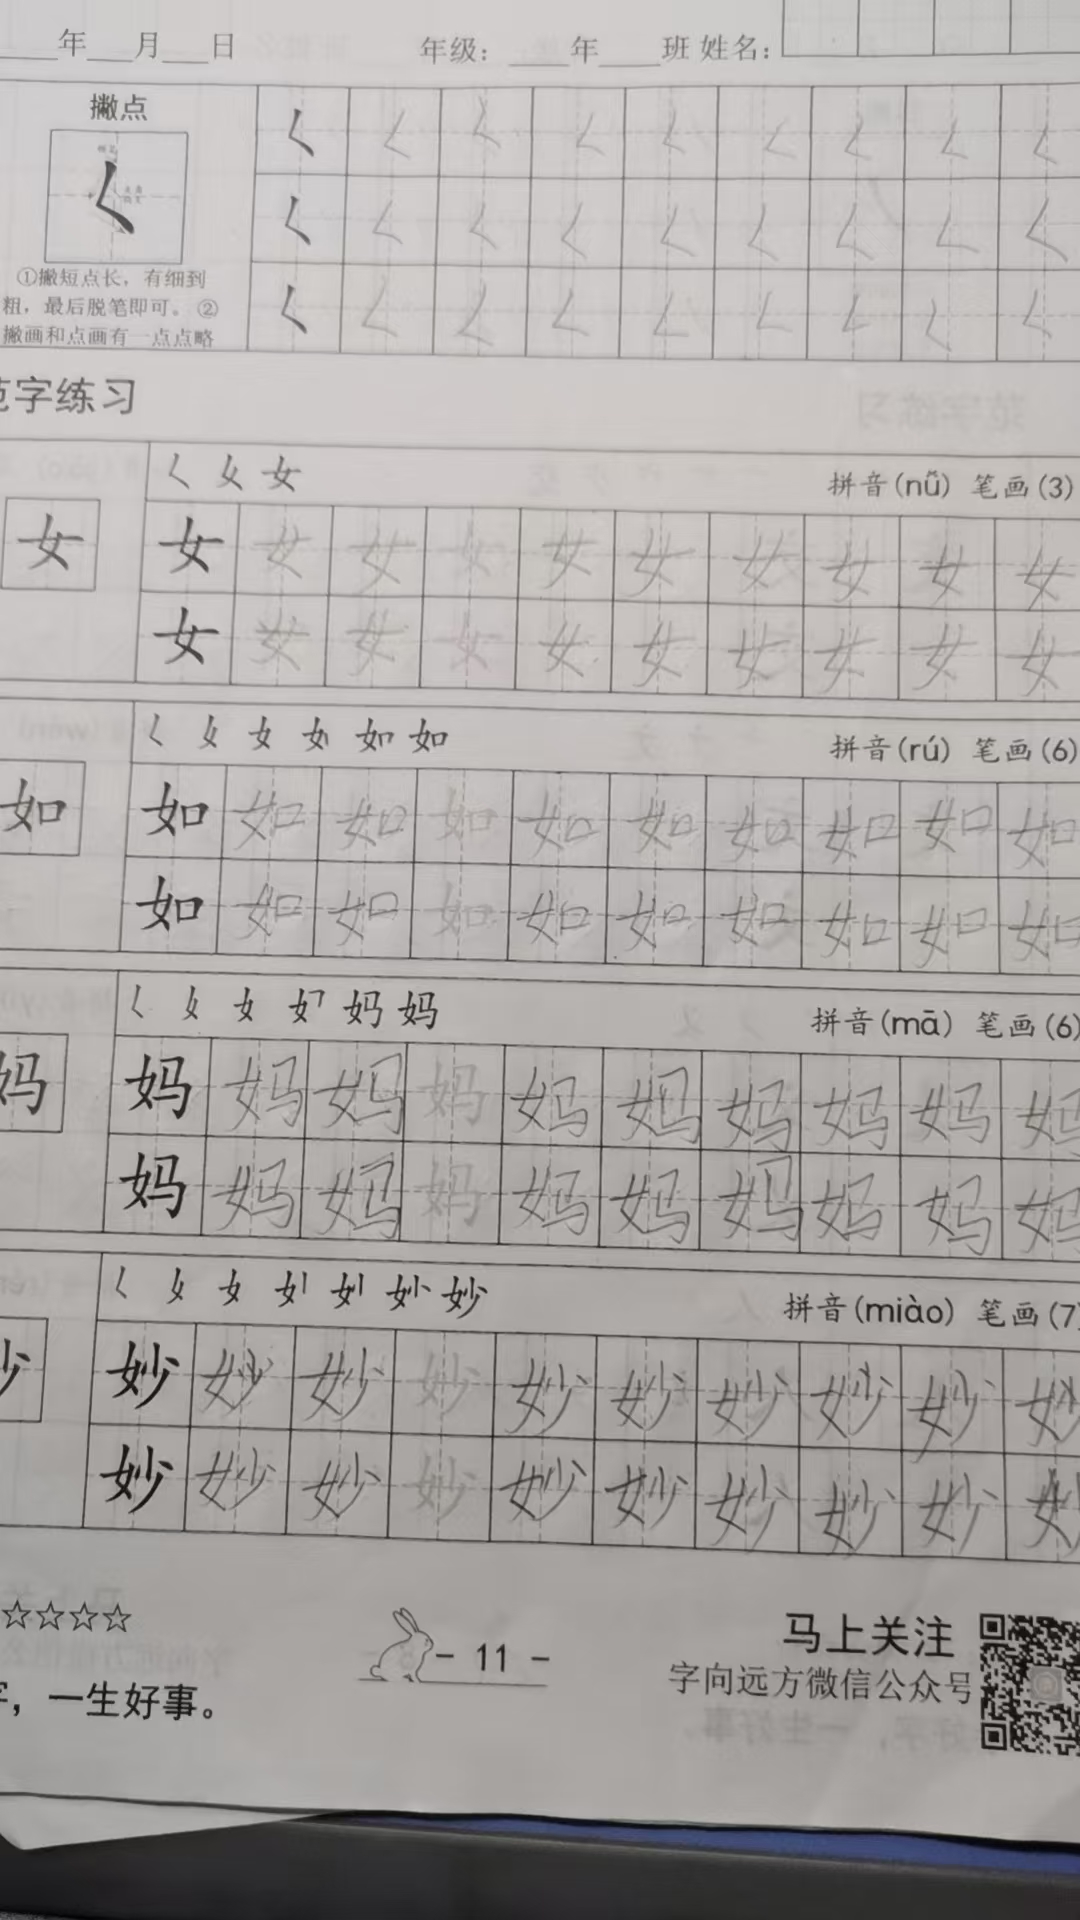 年 月 日 年级： 年 班 姓名：
撇点
①撇短点长，有细到
粗，最后脱笔即可。②
撇画和点画有一点点略
范字练习
拼音(nǚ) 笔画(3)
女 女 女 女 女 女 女 女 女 女 女
女 女 女 女 女 女 女 女 女 女
女 如 如 拼音(rú) 笔画(6)
如 如 如 如 如 如 如 如 如 如 如
如 如 如 如 如 如 如 如 如 如
女 妈 妈 拼音(mā) 笔画(6)
妈 妈 妈 妈 妈 妈 妈 妈 妈 妈 妈
妈 妈 妈 妈 妈 妈 妈 妈 妈 妈
女 妙 拼音(miào) 笔画(7)
妙 妙 妙 妙 妙 妙 妙 妙 妙 妙
妙 妙 妙 妙 妙 妙 妙 妙 妙
☆☆☆☆
字，一生好事。
- 11 -
马上关注
字向远方微信公众号